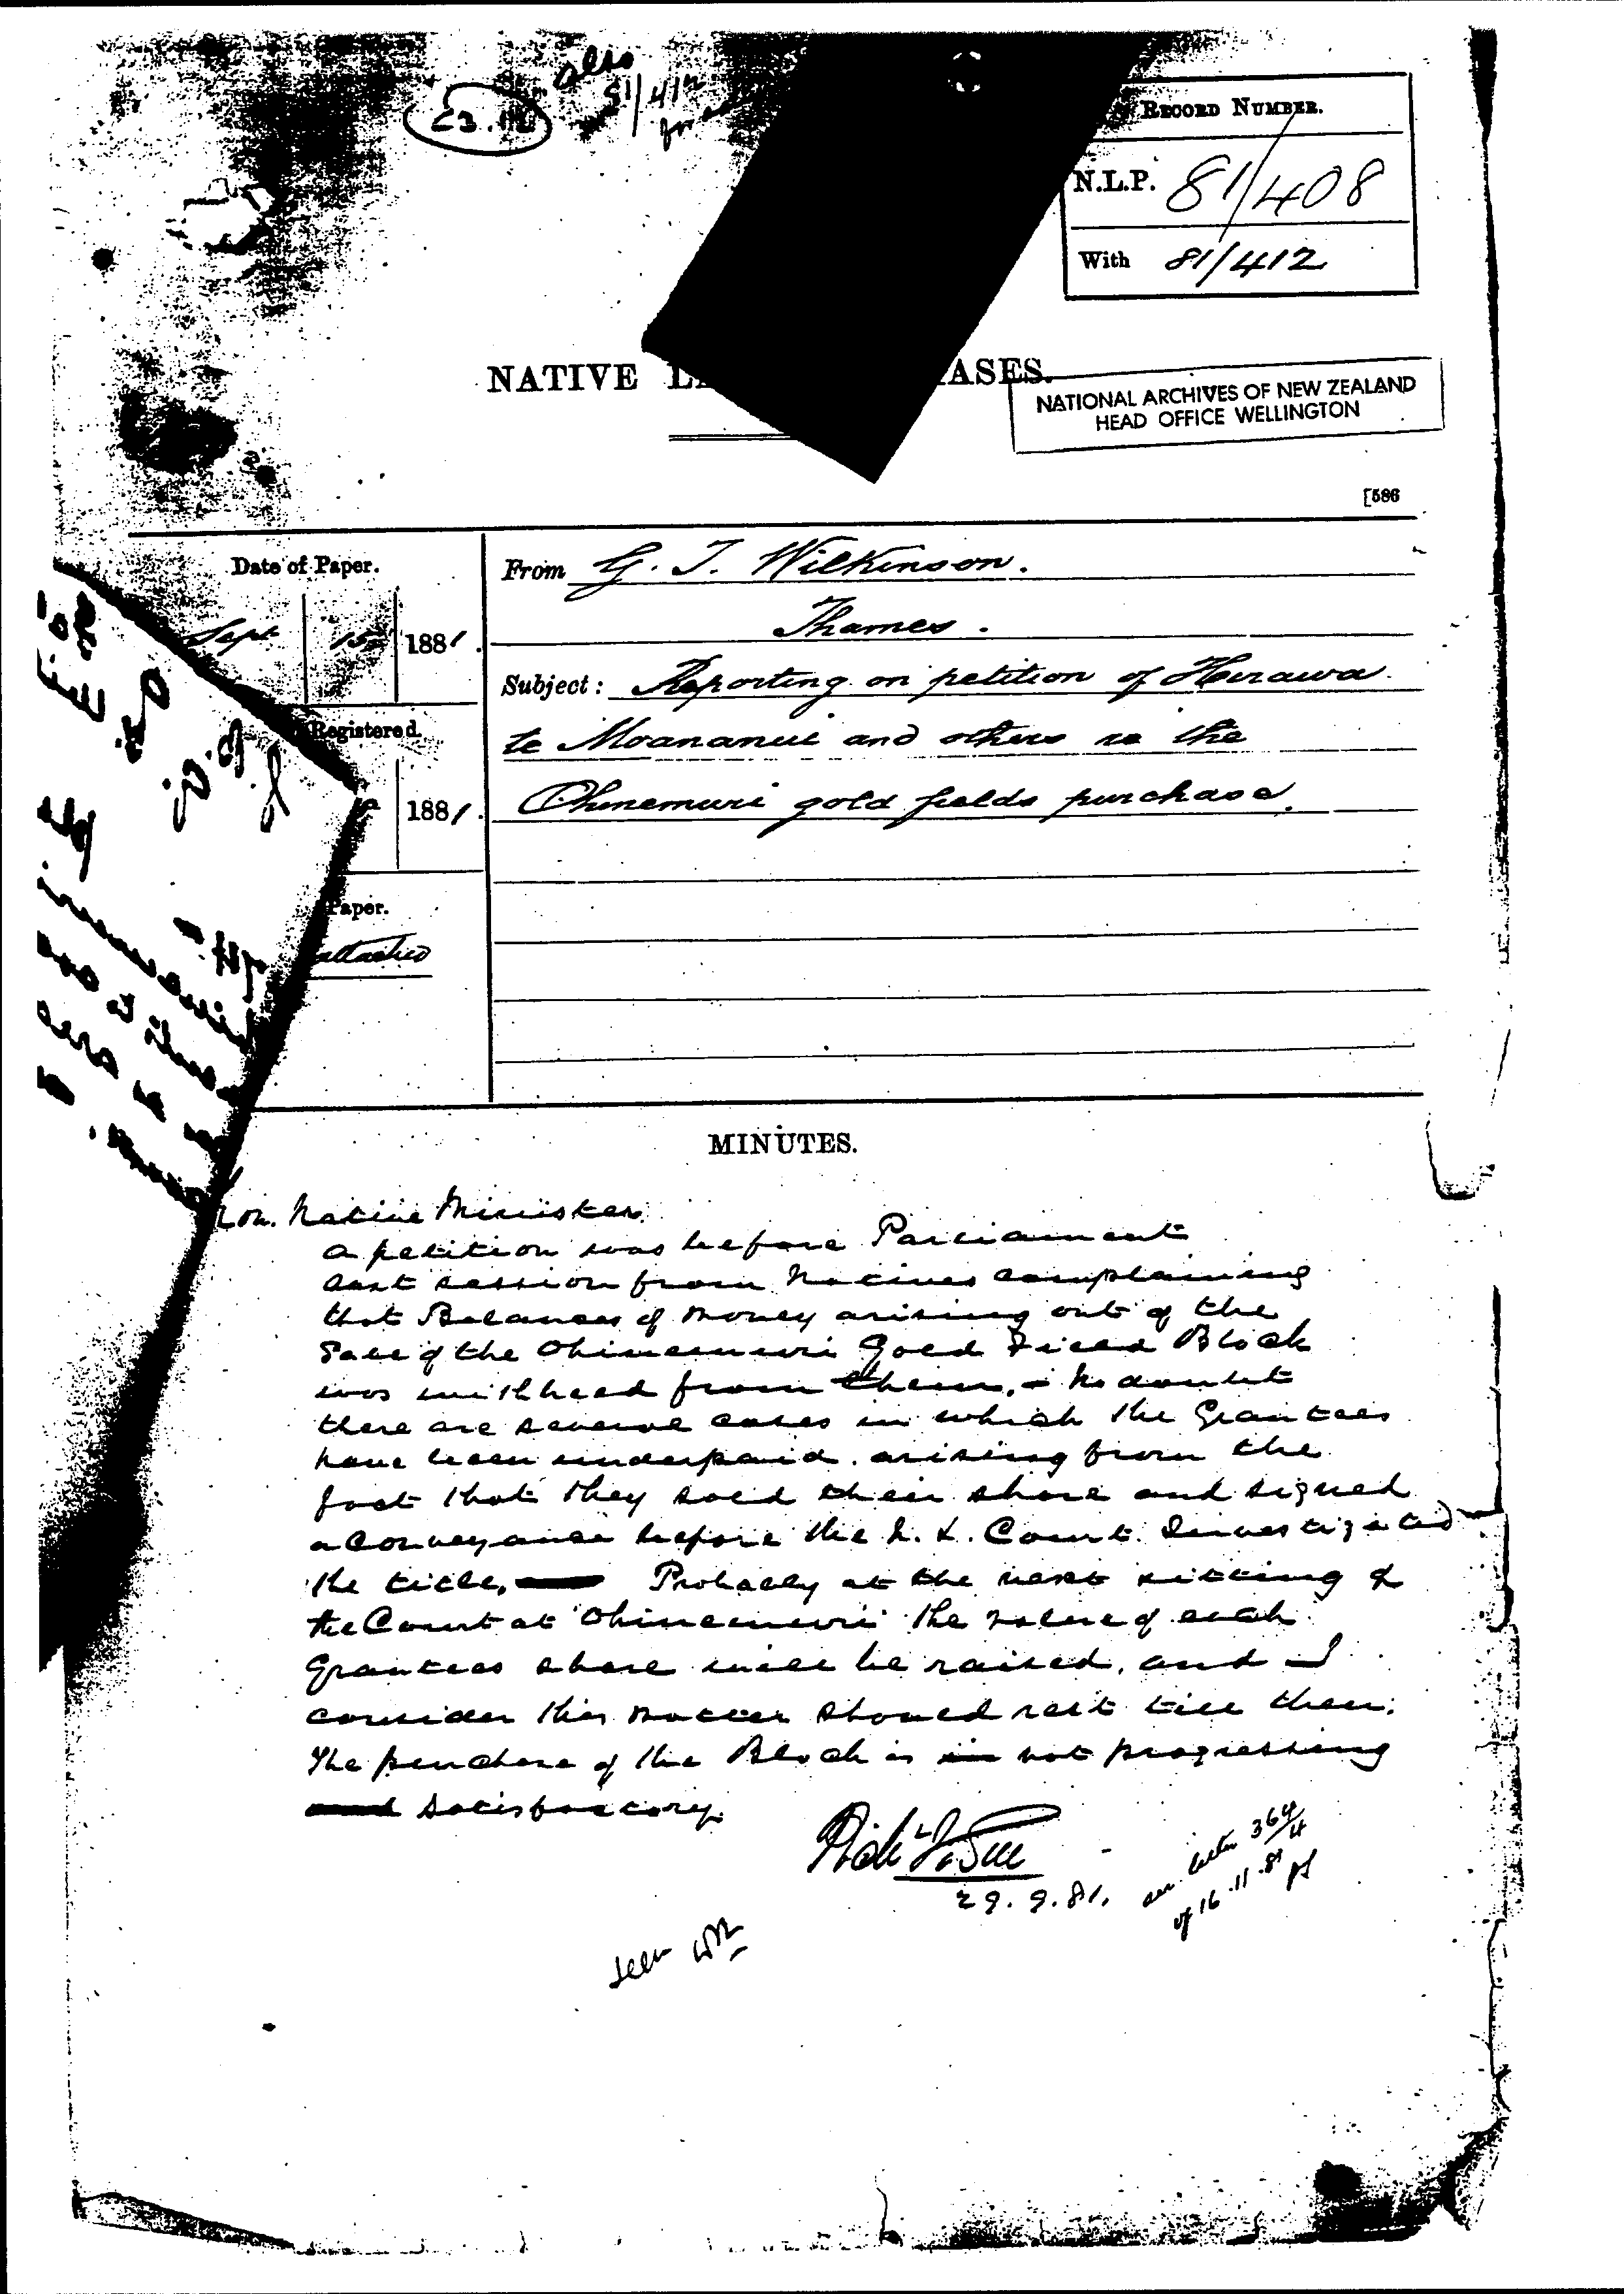 also
81/412
RECORD NUMBER.
N.L.P. 81/408
With 81/412
NATIVE L ASES.
NATIONAL ARCHIVES OF NEW ZEALAND
HEAD OFFICE WELLINGTON
[586
Date of Paper.
Sept 15 1881.
Registered.
1881.
Paper.
attached
From G. T. Wilkinson.
Thames.
Subject: Reporting on petition of Herawa
te Moananui and others re the
Ohinemuri gold fields purchase.
MINUTES.
Hon. Native Minister
A petition was before Parliament
last session from Natives complaining
that Balances of money arising out of the
Sale of the Ohinemuri Gold Field Block
was withheld from them, - no doubt
there are several cases in which the Grantees
have been underpaid. arising from the
fact that they sold their share and signed
a Conveyance before the N. L. Court Investigated
the title, Probably at the next sitting of
the Court at Ohinemuri the value of each
Grantees share will be raised, and I
consider this matter should rest till then.
The purchase of the Block is in not progressing
and satisfactory.
29.9.81.
see letter 364/4
of 16.11.81
seen